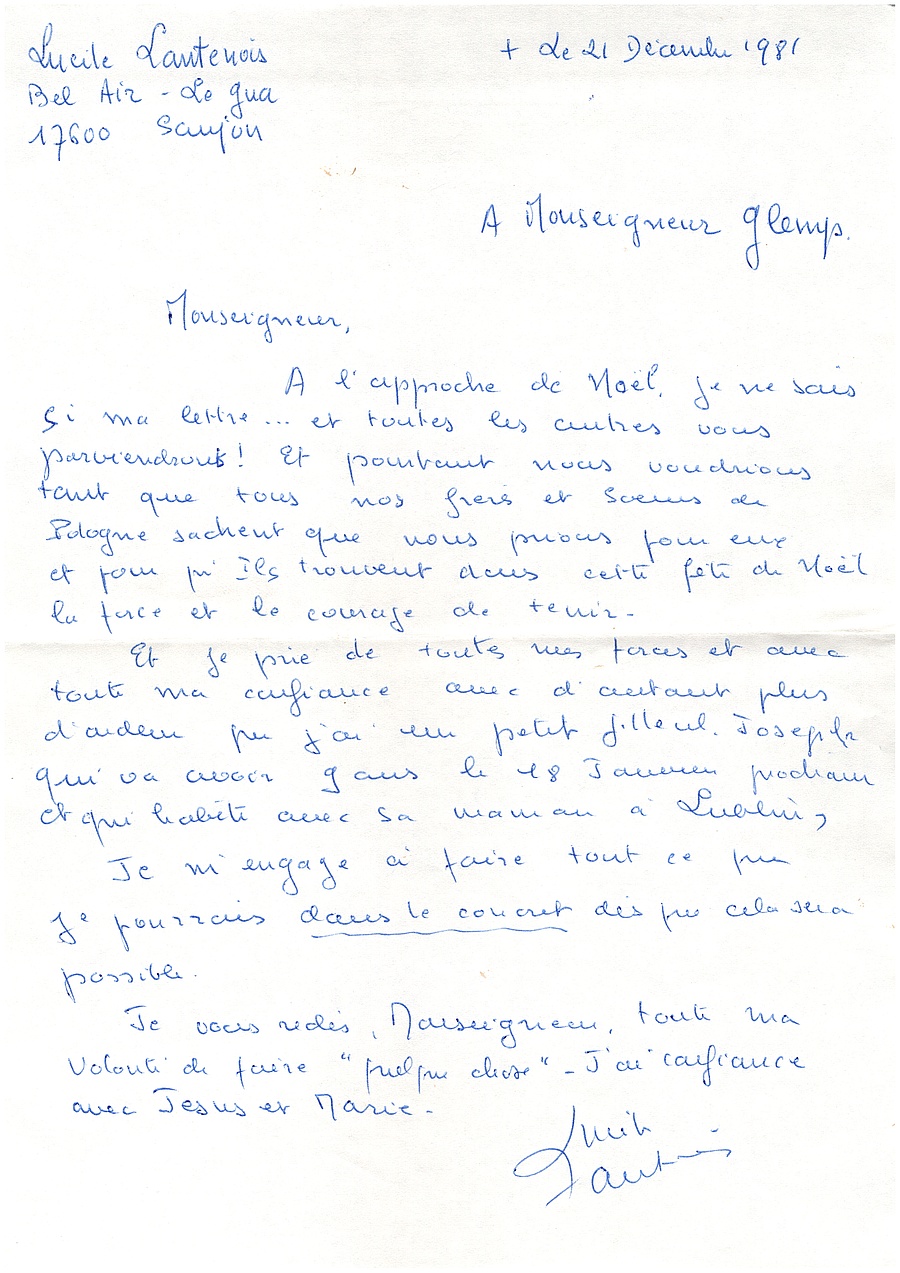 Lucile Lantenois
+ Le 21 Décembre 1981
Bel Air - Le Gua
17600 Saujon
A Monseigneur Glemp.
Monseigneur,
A l'approche de Noël, je ne sais
si ma lettre... et toutes les autres vous
parviendront! Et pourtant nous voudrions
tant que tous nos frères et Soeurs de
Pologne sachent que nous prions pour eux
et pour qu'Ils trouvent dans cette fête de Noël
la force et le courage de tenir -
Et je prie de toutes mes forces et avec
toute ma confiance avec d'autant plus
d'ardeur que j'ai un petit filleul. Joseph
qui va avoir 9 ans le 18 Janvier prochain
et qui habite avec sa maman à Lublin,
Je m'engage à faire tout ce que
je pourrais dans le concret dès que cela sera
possible.
Je vous redis, Monseigneur, toute ma
volonté de faire "quelque chose" - J'ai confiance
avec Jesus et Marie -
Lucile
Lantenois